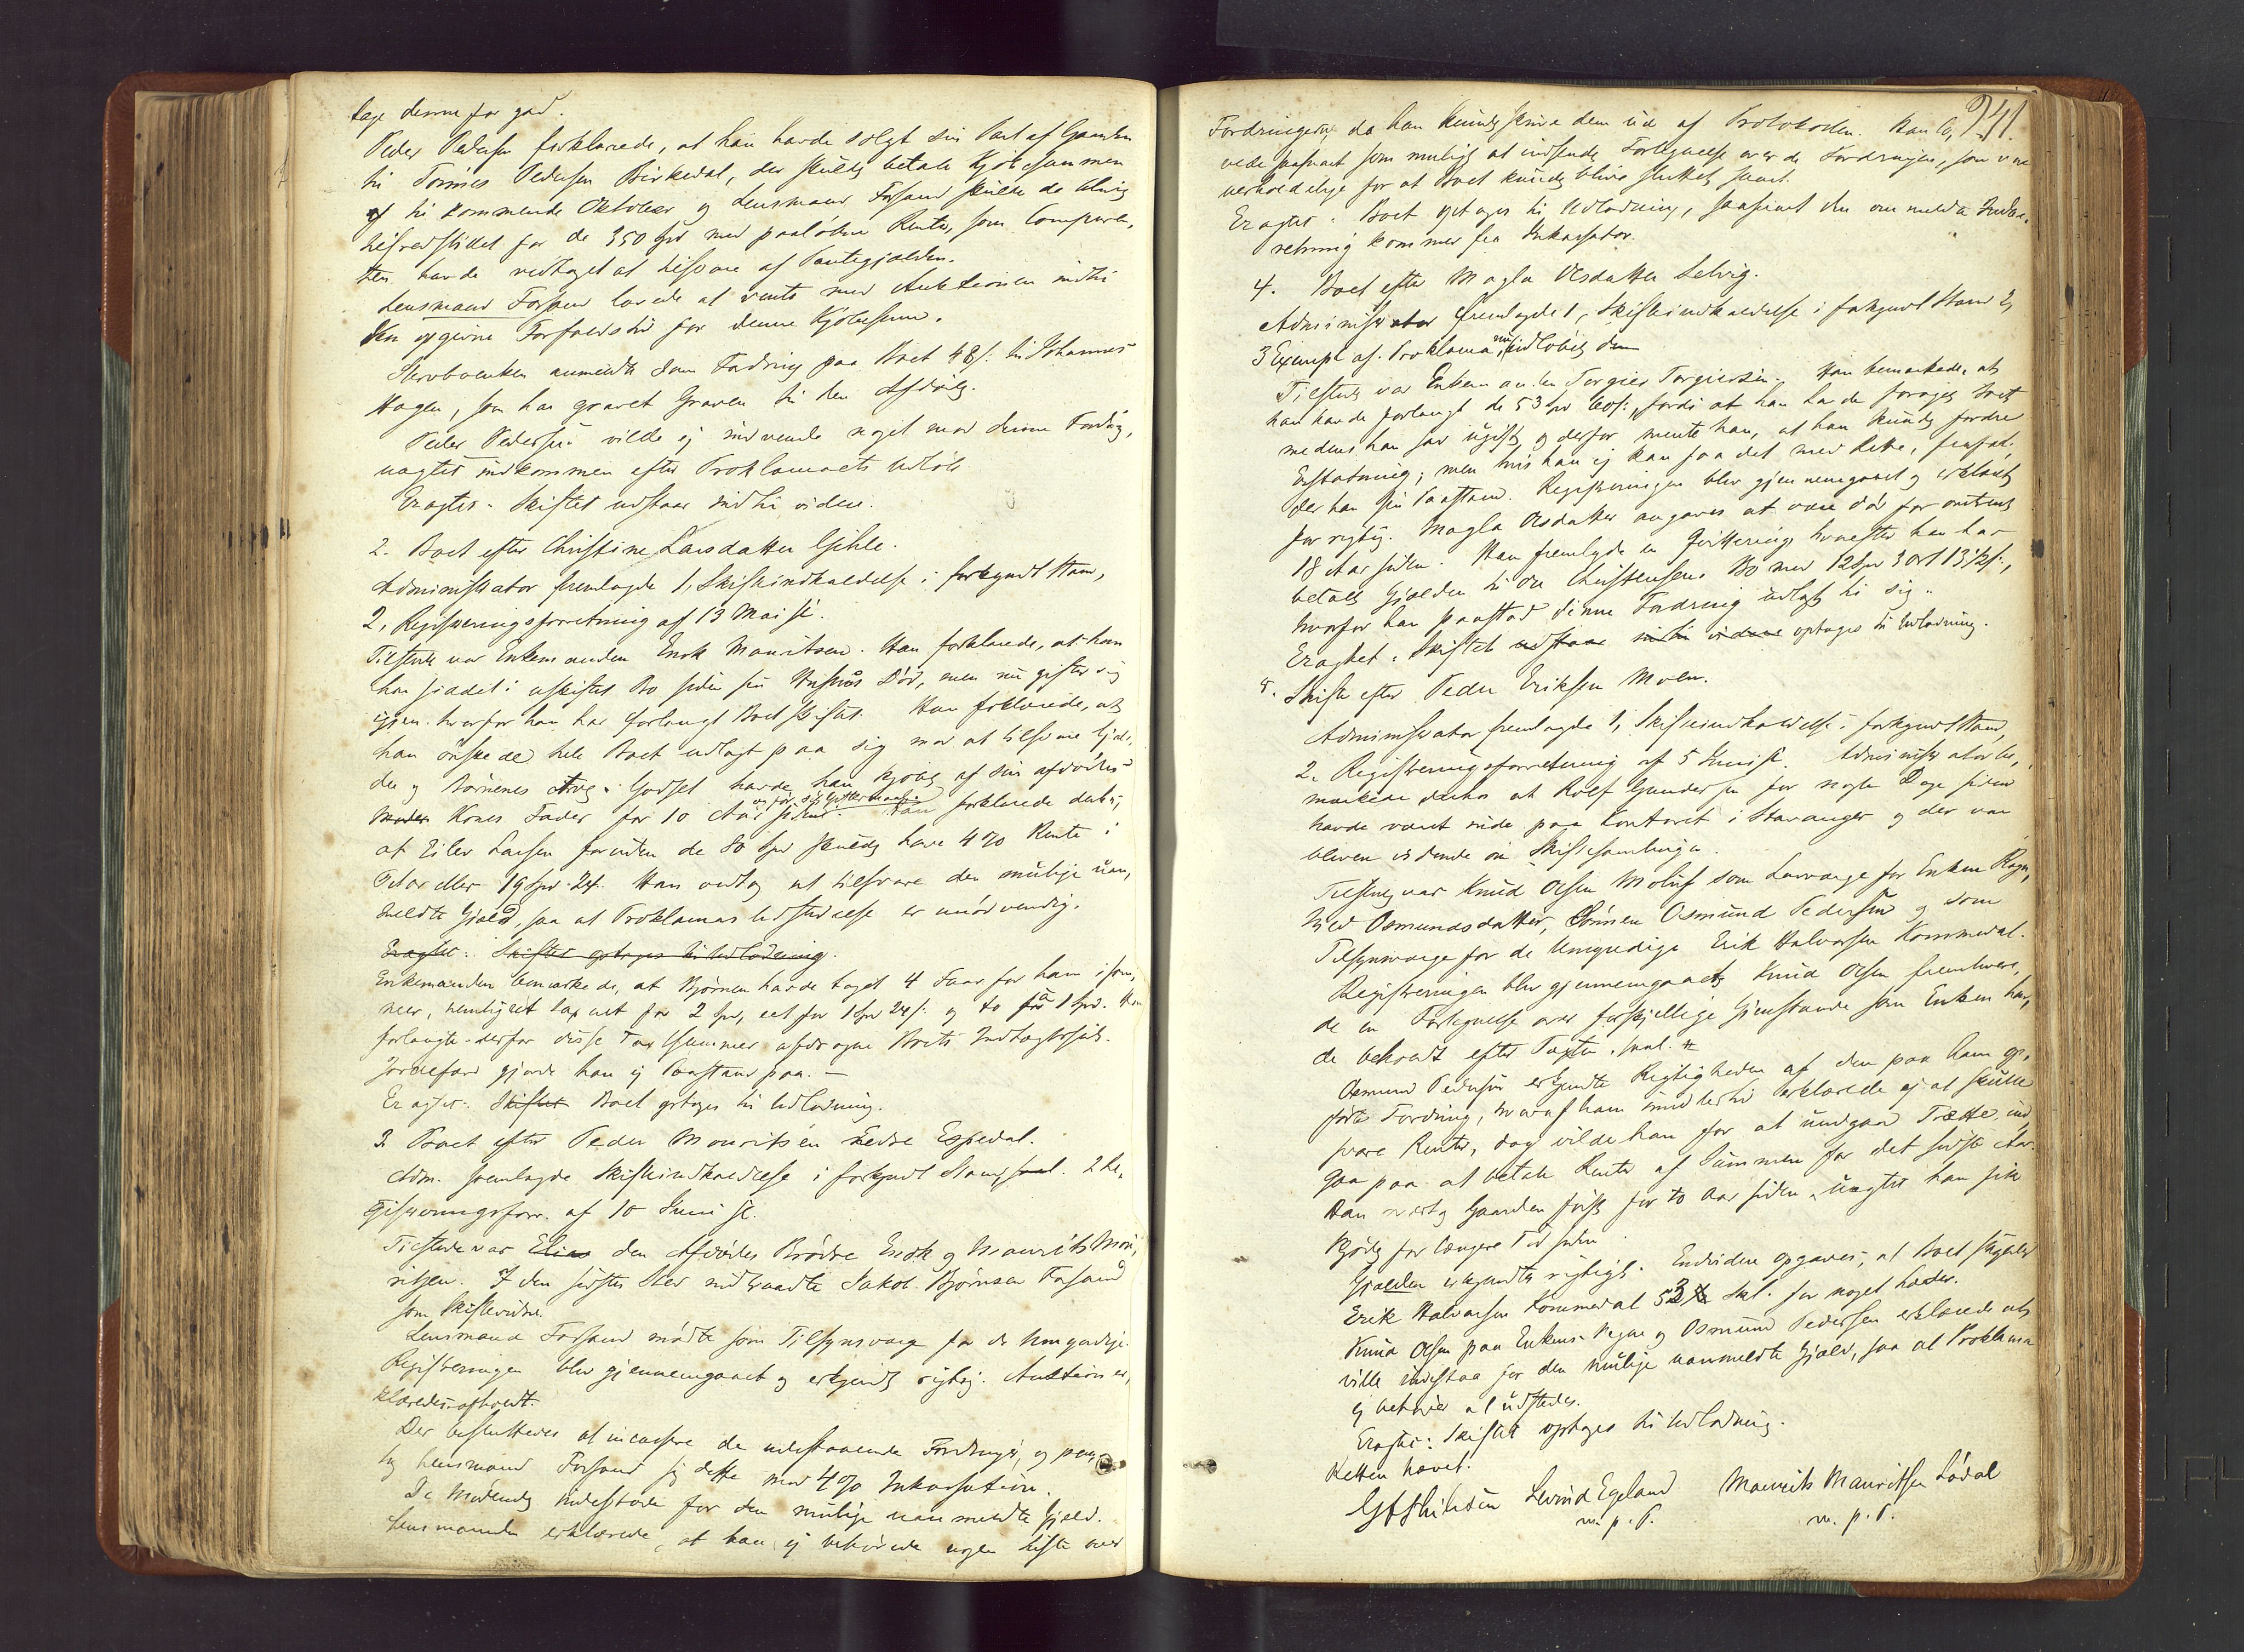 tage denne for god.
Peder Pedersen forklarede, at han havde solgt sin Part af Gaarden
til Tønnes Pedersen Birkedal, der skulde betale Kjøbesummen
til kommende Oktober og Lensmand Forsand skulde da blive
tilfredsstillet for de 350 Spd med paaløbne Renter, som Comparen-
ten havde vedtaget at tilsvare af Pantegjælden.
Lensmand Forsand lovede at vente med Auktionen indtil
den opgivne Forfaldstid for denne Kjøbesum.
anmeldte som Fordring paa Boet 48 s. til Johannes
Hagen, som har gravet Graven til den Afdøde.
Peder Pedersen vilde ej indvende noget mod denne Fordring,
uagtet indkommen efter Proklamaets Udløb
Eragtet: Skiftet udstaar indtil videre.
2. Boet efter Christine Larsdatter Gjihle.
Administrator fremlagde 1, Skifteindkaldelse i forkyndt Stand,
2, Registreringsforretning af 13 Mai sl.
Tilstede var Enkemanden Enok Mauritsen. Han forklarede, at han
har siddet i uskiftet Bo siden sin Hustrus Død, men nu gifter sig
igjen, hvorfor han har forlangt Boet skiftet. Han forklarede, at
han ønskede hele Boet udlagt paa sig mod at tilsvare Gjæl-
den og Børnenes Arv. Godset havde han kjøbt af sin afdøde
Moder Kones Fader for 10 Aar siden. Han forklarede derhos,
at Eilev Larsen foruden de 80 Spd skulde have 4 % Rente i
eller 19 Spd 24 s. Han vedtog at tilsvare den mulige uan-
meldte Gjæld, saa at Proklamas Udstedelse er unødvendig.
Eragtet: Skiftet optages til Udlodning.
Enkemanden bemærkede, at Bjørnen havde taget 4 Faar for ham i som-
mer, nemlig et taxeret for 2 Spd, eet for 1 Spd 24 s. og to for a 1 Spd. Han
forlangte derfor disse Taxtsummer afdragne Boets Indtægtsside.
Jordefærd gjorde han ej Paastand paa. —
Eragtet: Skiftet Boet optages til Udlodning.
3. Boet efter Peder Mouritsen Nedre Espedal.
Adm. fremlagde Skifteindkaldelse i forkyndt Stand, 2 Re-
gistreringsforr. af 10 Juni sl.
Tilstede var Elias den Afdødes Brødre Enok og Maurits Mou-
ritzen. I den sidstes Sted indtraadte Jakob Bjørnsen Forsand
som Skiftevidne.
Lensmand Forsand mødte som Tilsynsværge for de Umyndige.
Registreringen blev gjennemgaaet og erkjendt rigtig. Auktion er-
klæredes afholdt.
Der besluttedes at incassere de udestaaende Fordringer, og paa-
tog Lensmand Forsand sig dette mod 4 % Inkassation.
De Mødende indestode for den mulige uanmeldte Gjæld.
Lensmanden erklærede, at han ej behøvede nogen Liste over
241
Fordringerne, da han kunde skrive dem ud af Protokollen. Han lo-
vede saasnart som muligt at indsende Fortegnelse over de Fordringer, som vare
erholdelige for at Boet kunde blive sluttet snart.
Eragtet: Boet optages til Udlodning, saasnart den ommeldte Indbe-
retning kommer fra Inkassator.
4. Boet efter Magla Olsdatter Selvig.
Administrator fremlagde 1, Skifteindkaldelse i forkyndt Stand 2,
3 Exempl. af Proklama nu udløbet
Tilstede var Enkemanden Torgier Torgiersen. Han bemærkede, at
han havde forlangt de 53 Spd 60 s., fordi at han havde forøget Boet
medens han sad ugift, og derfor mente han, at han kunde fordre
Erstatning; men hvis han ej kan faa det med Rette, frafal-
der han sin Paastand. Registreringen blev gjennemgaaet og erklæret
for rigtig. Magla Olsdatter angaves at være død for omtrent
18 Aar siden. Han fremlagde en Qvittering hvorefter han har
betalt Gjælden til Ole Christensens Bo med 12 Spd 3 ort 13 1/2 s.,
hvorfor han paastod denne Fordring udlagt til sig.
Eragtet: Skiftet udstaar indtil videre optages til Udlodning.
5. Skifte efter Peder Eriksen Moen.
Administrator fremlagde 1, Skifteindkaldelse i forkyndt Stand,
2, Registreringsforretning af 5 Juni sl. Administrator be-
mærkede derhos at Rolf Gundersen for nogle Dage siden
havde været inde paa Kontoret i Stavanger og der var
bleven vidende om Skiftesamlingen.
Tilstede var Knud Olsen Moluf som Laugværge for Enken Ragn-
hild Osmundsdatter, Sønnen Osmund Pedersen og som
Tilsynsværge for de Umyndige Erik Halvorsen Kommedal.
Registreringen blev gjennemgaaet, Knud Olsen fremlever-
de en Fortegnelse over forskjellige Gjenstande som Enken hav-
de beholdt efter Taxten.
Osmund Pedersen erkjendte Rigtigheden af den paa ham op-
førte Fordring, hvoraf han imidlertid erklærede ej at skulle
svare Renter, dog vilde han for at undgaa Trætte ind-
gaa paa at betale Rente af Summen for det sidste Aar.
Han modtog Gaarden først for to Aar siden, uagtet han fik
Skjøde for længere Tid siden.
Gjælden erkjendtes rigtigt. Endvidere opgaves, at Boet skylder
Erik Halvorsen Kommedal 53 Skl. for noget Læder.
Knud Olsen paa Enkens Vegne og Osmund Pedersen erklærede at
ville indestaa for den mulige uanmeldte Gjæld, saa at Proklama
ej behøver at udstedes.
Eragtet: Skiftet optages til Udlodning.
Retten hævet.
Levind Egeland Maurits Mauritsen Lødal
m. p. P. m. p. P.